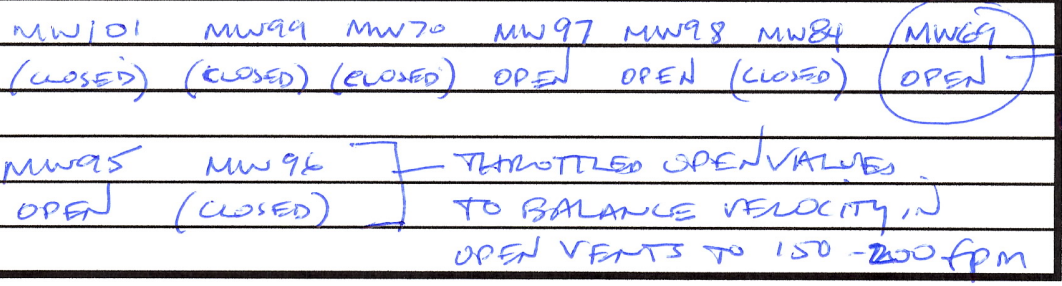 MW101 MW99 MW70 MW97 MW98 MW84 MW69
(CLOSED) (CLOSED) (CLOSED) OPEN OPEN (CLOSED) OPEN
MW95 MW96 THROTTLED OPEN VALVES
OPEN (CLOSED) TO BALANCE VELOCITY IN
OPEN VENTS TO 150-200 fpm